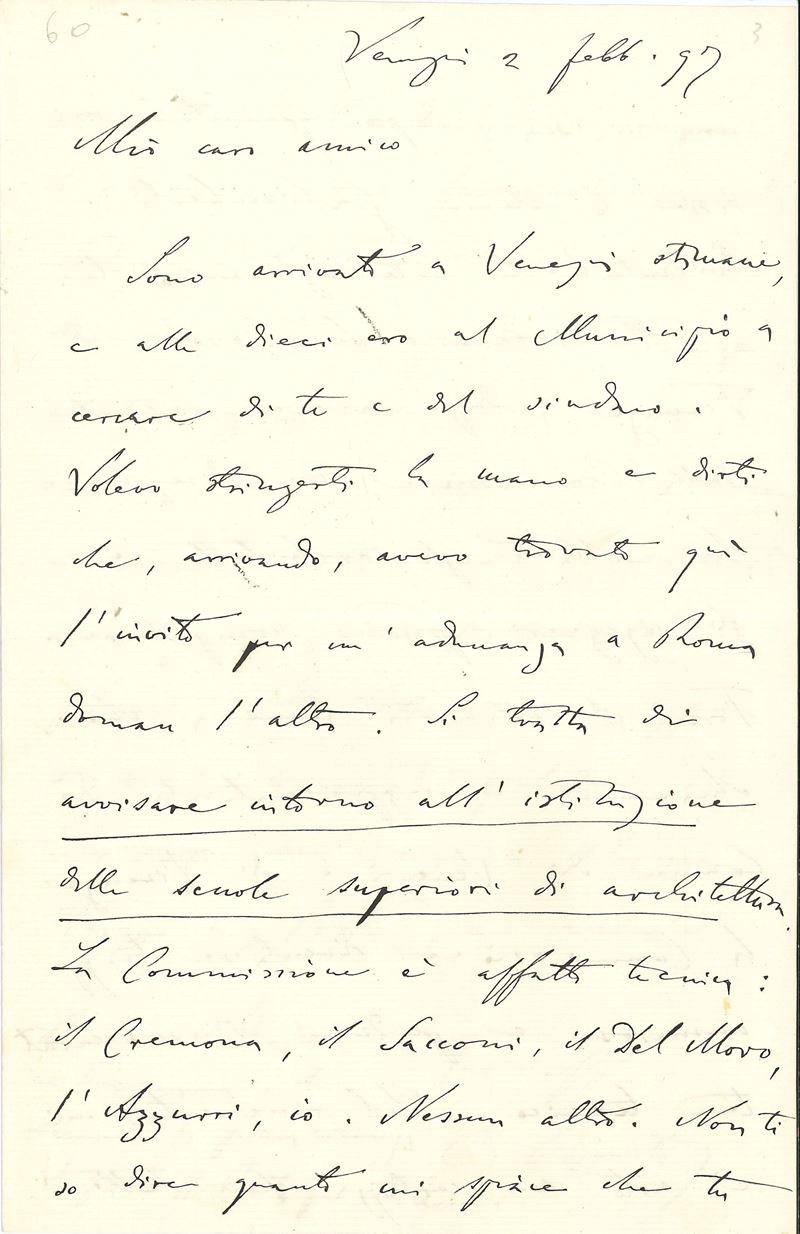 60 3
Venezia 2 febb. 97
Mio caro amico
Sono arrivato a Venezia stimane,
e alle dieci ero al Municipio a
cercare di te e del sindaco.
Volevo stringerti la mano e dirti
che, arrivando, avevo trovato quì
l'invito per un'adunanza a Roma
doman l'altro. Si tratta di
avvisare intorno all'istituzione
delle scuole superiori di architettura.
La Commissione è affatto tecnica:
il Cremona, il Sacconi, il Del Moro,
l'Azzurri, io. Nessun altro. Non ti
so dire quanto mi spiace che tu